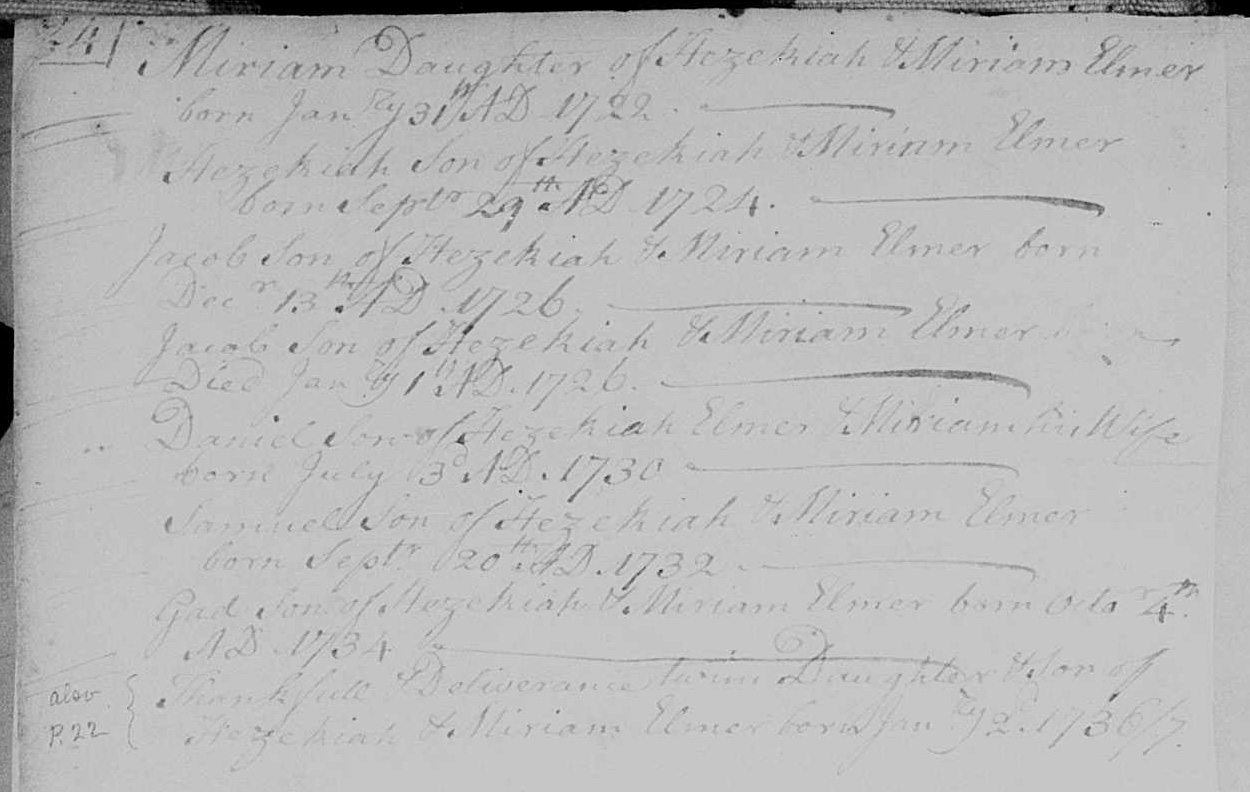 Miriam Daughter of Hezekiah & Miriam Elmer
born Janry 31st AD 1722.
Hezekiah Son of Hezekiah & Miriam Elmer
born Septr 29th AD 1724.
Jacob Son of Hezekiah & Miriam Elmer born
Decr 13th AD. 1726.
Jacob Son of Hezekiah & Miriam Elmer
Died Janry 1st AD. 1726.
Daniel Son of Hezekiah Elmer & Miriam his Wife
born July 3d AD. 1730
Samuel Son of Hezekiah & Miriam Elmer
born Septr 20th AD. 1732
Gad Son of Hezekiah & Miriam Elmer born Octor 4th
AD 1734
Thankfull & Deliverance twin Daughter & Son of
Hezekiah & Miriam Elmer born Janry 2. 1736/7.
also
P. 22